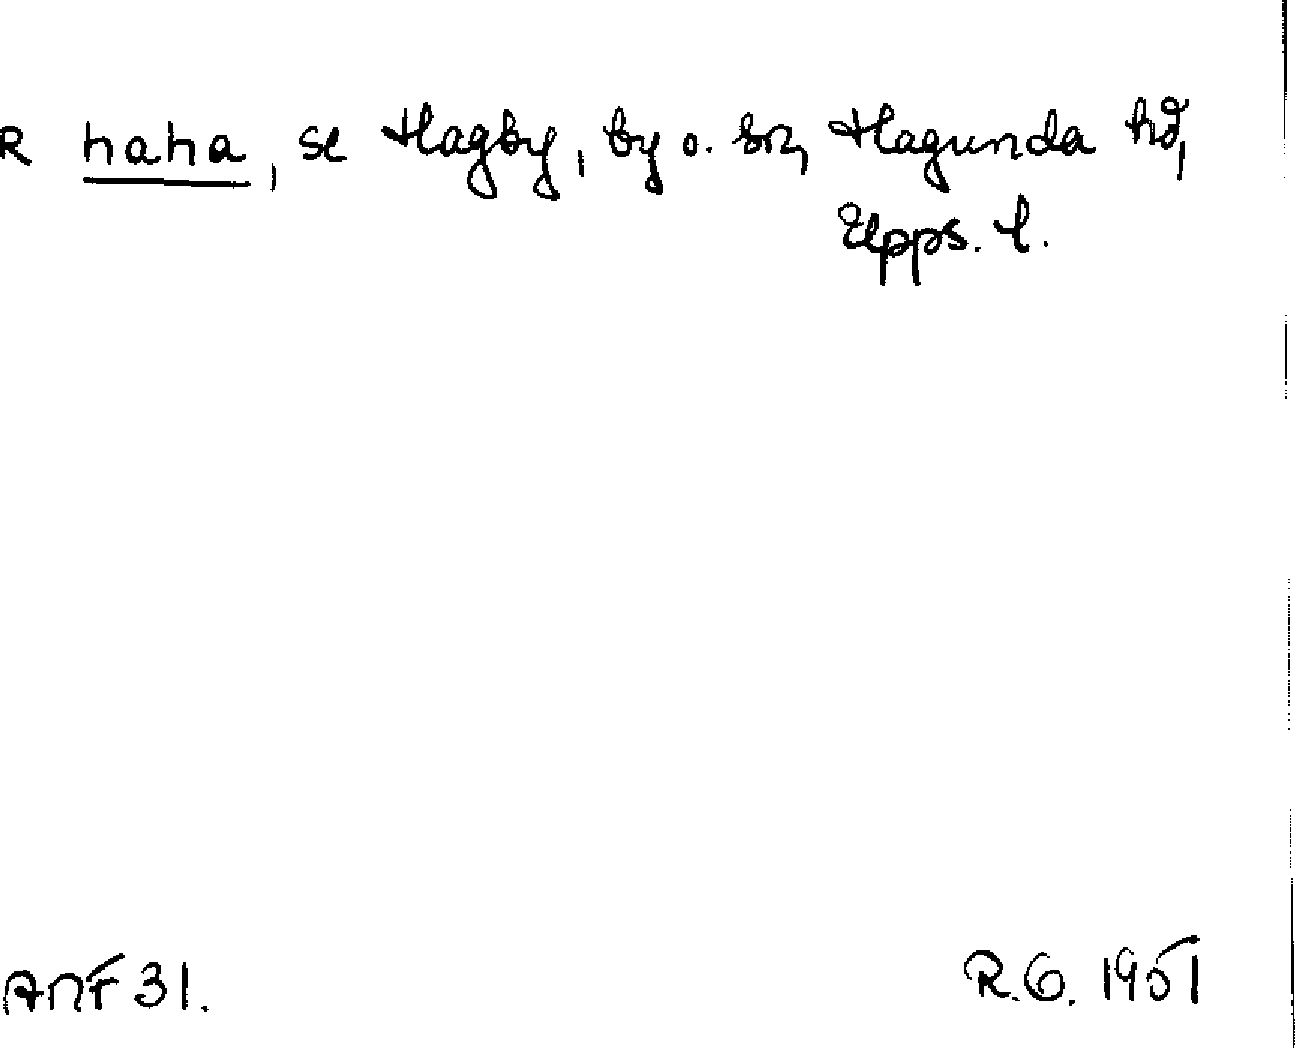 R haha, se Hagby, by o. sn, Hagunda hd,
Upps. l.
ANF 31.
R.G. 1951